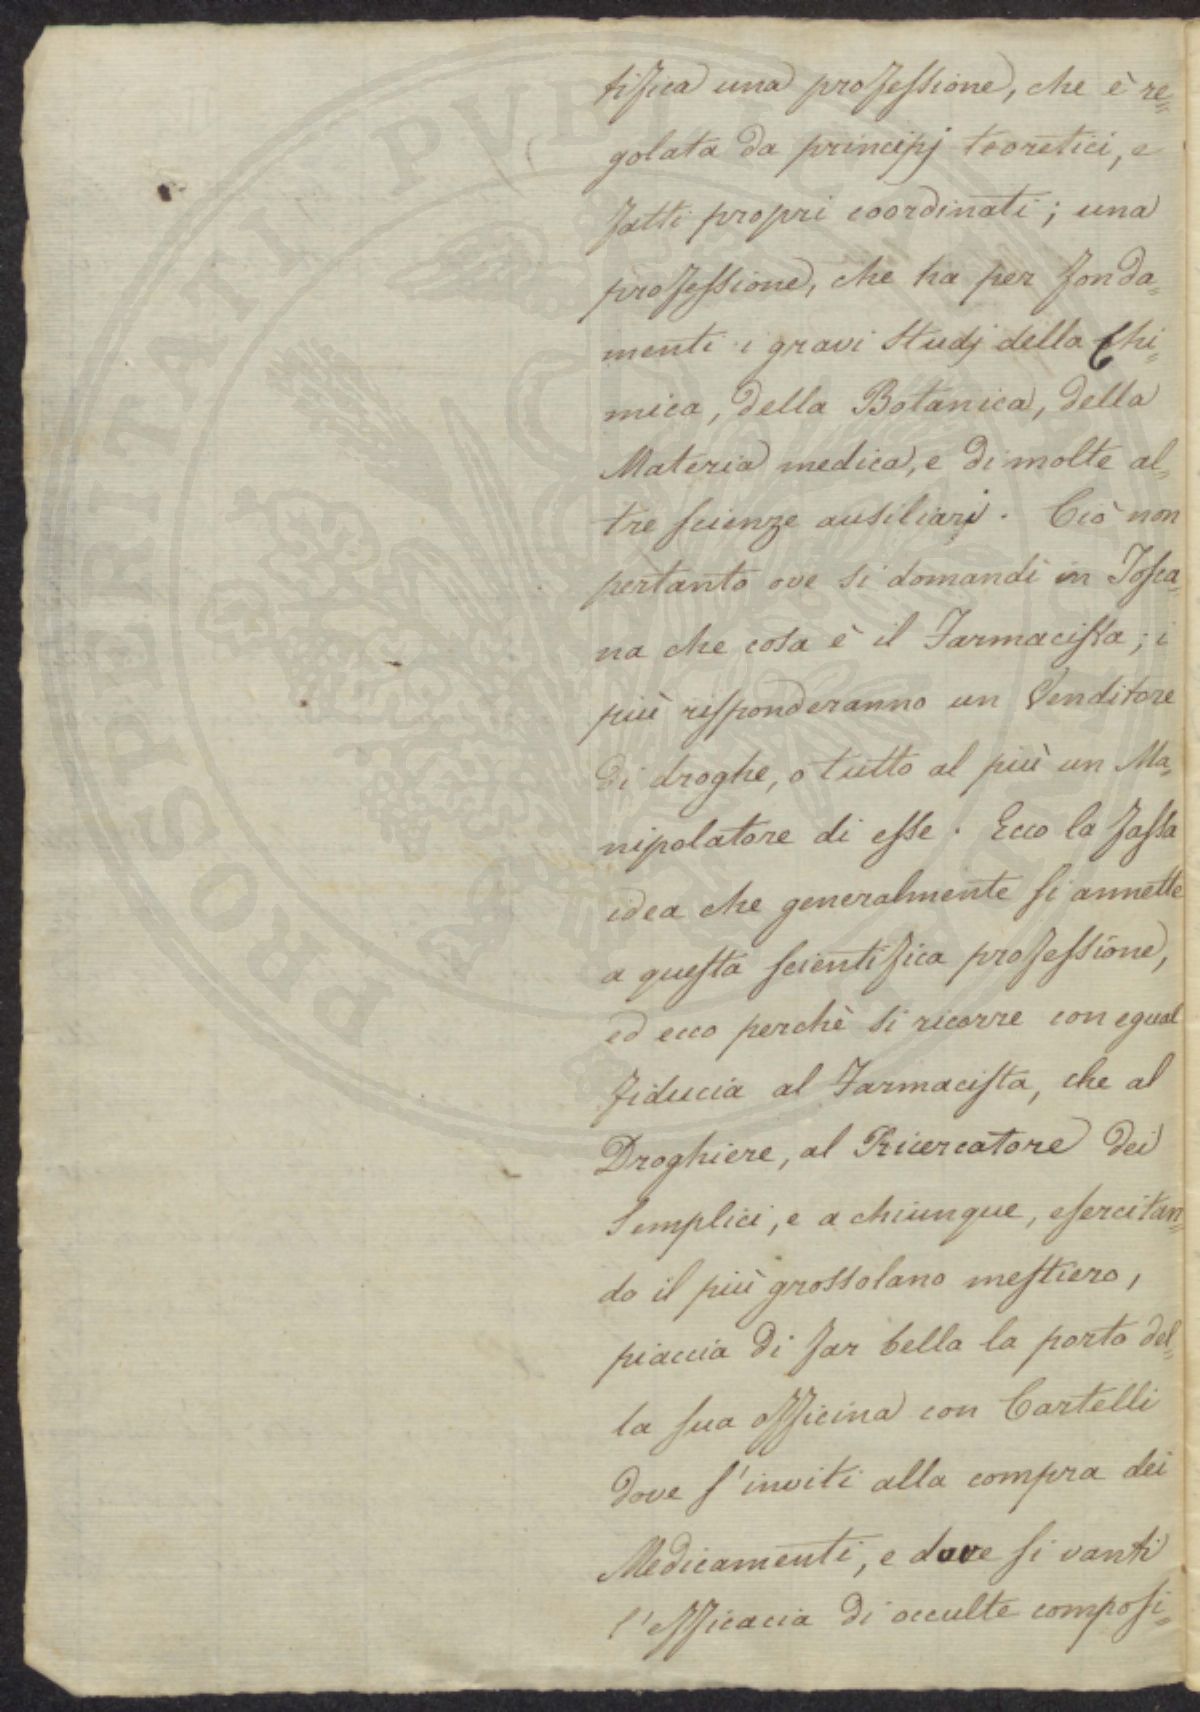 tifica una professione, che è re=
golata da principj teoretici, e
fatti propri coordinati; una
professione, che ha per fonda=
menti i gravi Studj della Chi=
mica, della Botanica, della
Materia medica, e di molte al=
tre scienze ausiliarj. Ciò non
pertanto ove si domandi in Tosca=
na che cosa è il Farmacista; i
più risponderanno un Venditore
di droghe, o tutto al più un Ma=
nipolatore di esse. Ecco la falsa
idea che generalmente si annette
a questa scientifica professione,
ed ecco perchè si ricorre con egual
fiducia al Farmacista, che al
Droghiere, al Ricercatore dei
Semplici, e a chiunque, esercitan=
do il più grossolano mestiero,
piaccia di far bella la porta del=
la sua officina con Cartelli
dove s'inviti alla compra dei
Medicamenti, e dove si vanti
l'efficacia di occulte composi=
PROSPERITATI PVBLICAE